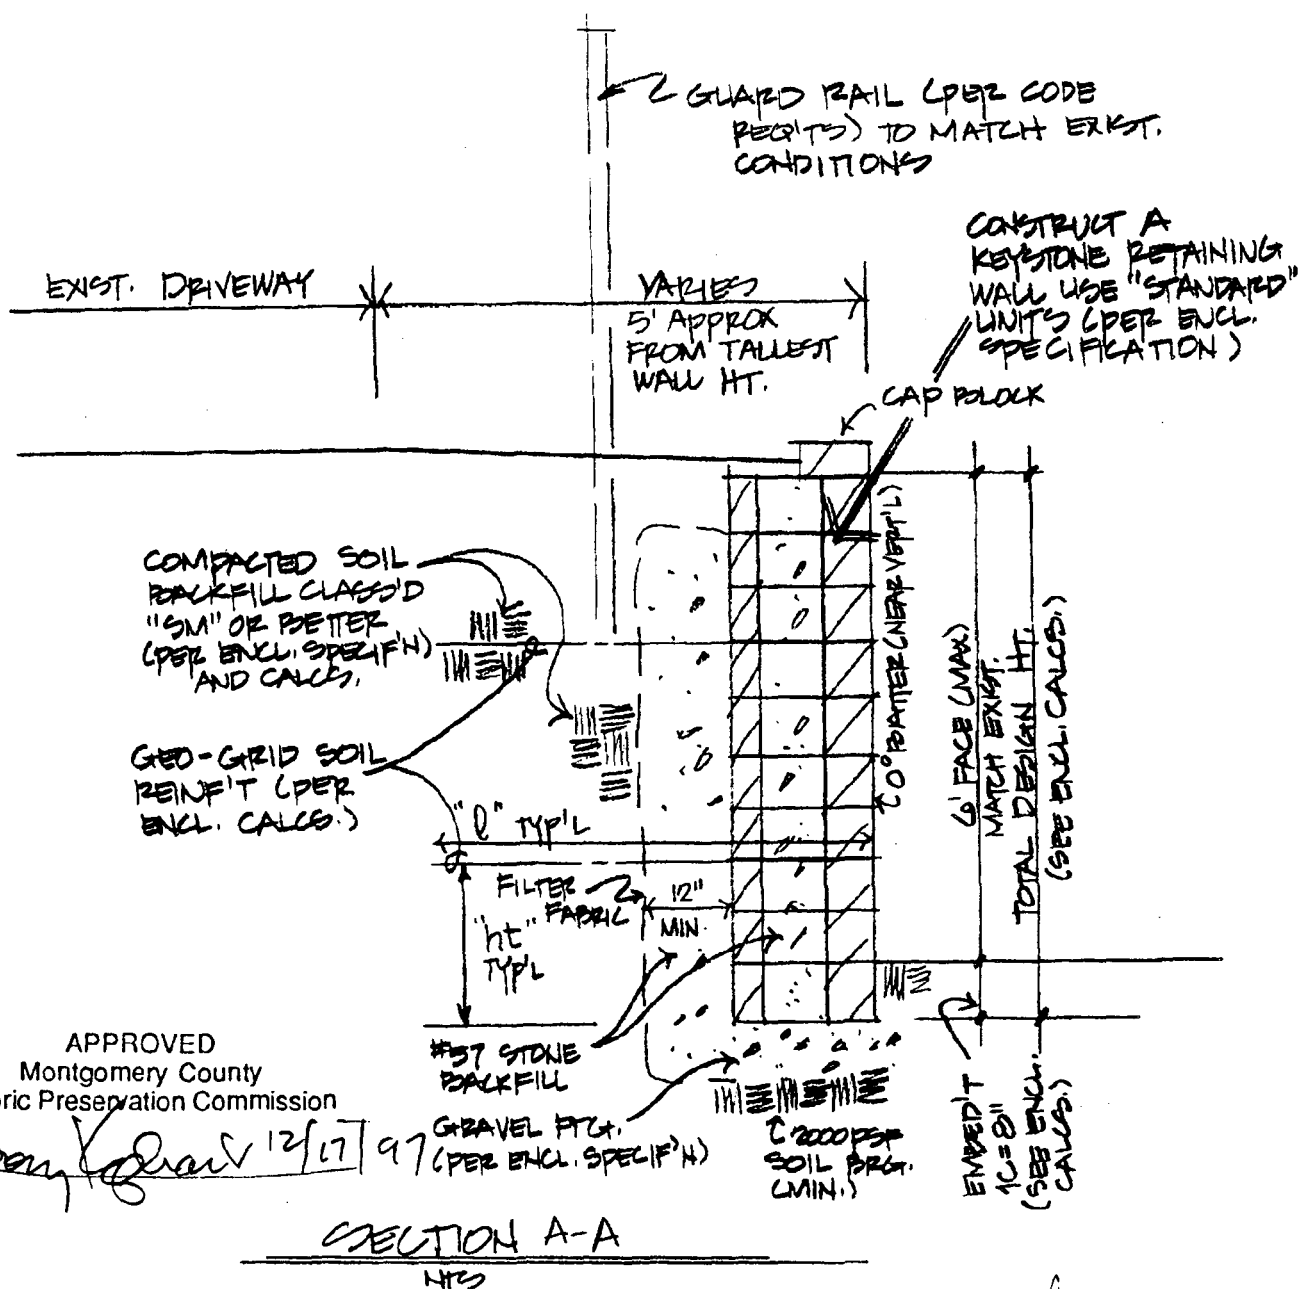 GUARD RAIL (PER CODE
REQ'TS) TO MATCH EXIST.
CONDITIONS
CONSTRUCT A
KEYSTONE RETAINING
WALL USE "STANDARD"
UNITS (PER ENCL.
SPECIFICATION)
EXIST. DRIVEWAY
VARIES
5' APPROX
FROM TALLEST
WALL HT.
CAP BLOCK
COMPACTED SOIL
BACKFILL CLASS'D
"SM" OR BETTER
(PER ENCL. SPECIF'N)
AND CALCS.
GEO-GRID SOIL
REINF'T (PER
ENCL. CALCS.)
"l" TYP'L
0° BATTER (NEAR VERT'L)
6' FACE (MAX)
MATCH EXIST.
TOTAL DESIGN HT.
(SEE ENCL. CALCS.)
FILTER
FABRIC
12"
MIN.
"ht"
TYP'L
#57 STONE
BACKFILL
GRAVEL FTG.
(PER ENCL. SPECIF'N)
2000 PSF
SOIL BRG.
(MIN.)
EMBED'T
1C=8"
(SEE ENCL.
CALCS.)
APPROVED
Montgomery County
ric Preservation Commission
12/17/97
SECTION A-A
NTS